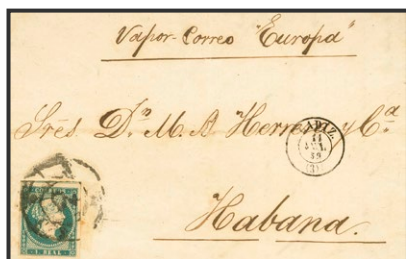 Vapor-Correo "Europa"
Sres Dn. M. A. Herrera y Ca.
CADIZ
11
59
(3)
Habana.
1 REAL